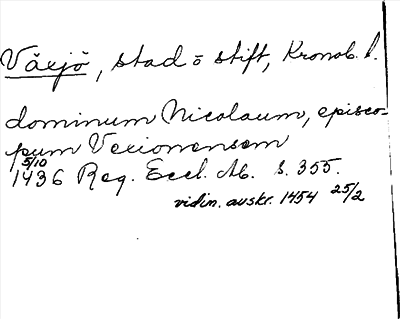 Växjö, stad o stift, Kronob. l.
dominum Nicolaum, episco-
pum Vexionensem
5/10
1436 Reg. Eccl. Ab. s. 355.
vidim. avskr. 1454 25/2